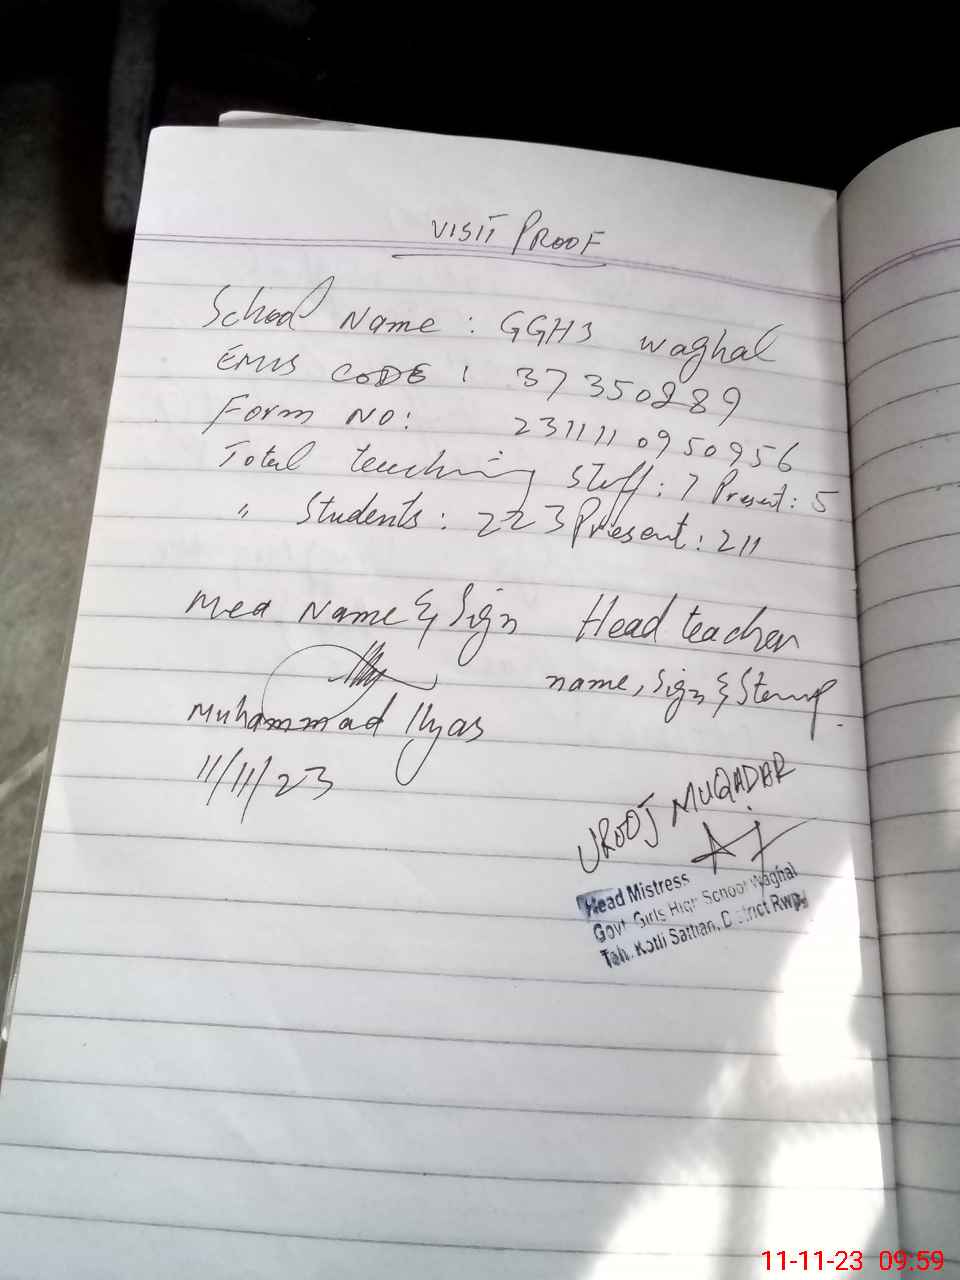 VISIT PROOF
School Name : GGHS Waghal
EMIS CODE : 37350289
Form NO: 231111 0950956
Total teaching Staff: 7 Present: 5
" Students: 223 Present: 211
Mea Name & Sign
Head teacher
name, Sign & Stamp.
Muhammad Ilyas
11/11/23
UROOJ MUQADAR
Head Mistress
Govt Girls High School Waghal
Teh. Kotli Sattian, District Rwp
11-11-23 09:59